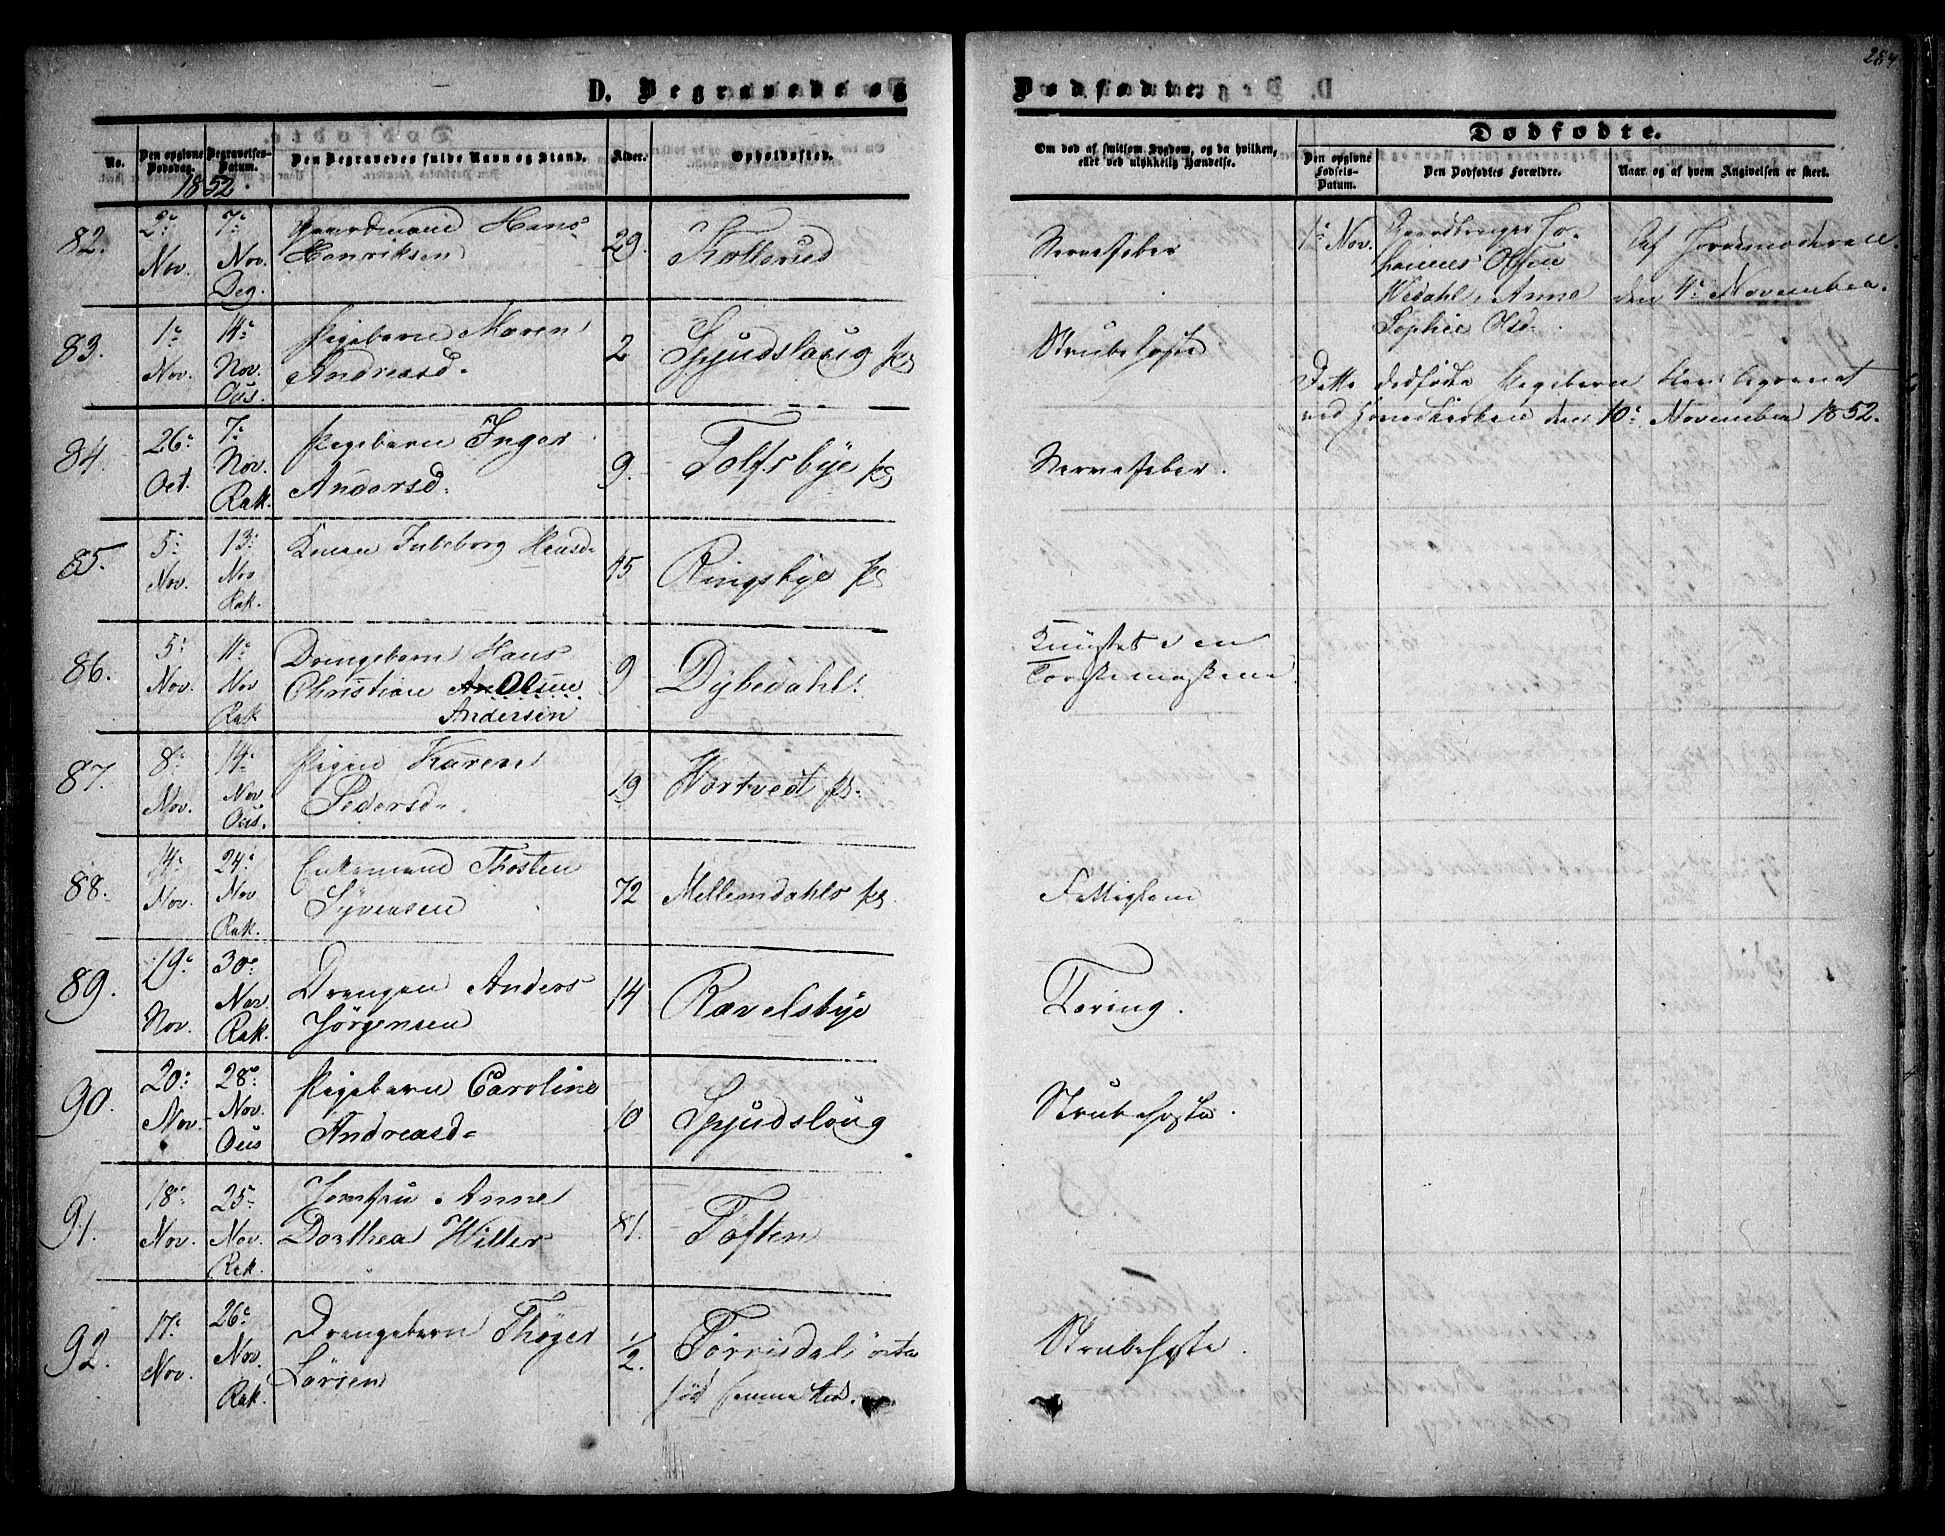 284
D. Begravede og
Dødfødte.
No.
Den opgivne Dødsdag.
Begravelses-Datum.
Den Begravedes fulde Navn og Stand.
Alder.
Opholdssted.
Om død af smitsom Sygdom, og da hvilken, eller ved ulykkelig Hændelse.
Dødfødte.
Den opgivne Fødsels-Datum.
Den Dødfødtes Forældre.
Naar og af hvem Angivelsen er skeet.
1852.
82.
2 Nov.
7 Nov. Deg.
Gaardmand Hans
Henriksen
29.
Kollerud
Nervefeber
1 Nov.
Gaardbruger Jo-
hannes Olsen
Wedahl, Anne
Sophie Olsd.
Af Jordemoderen
den 4 November.
83.
1 Nov.
14 Nov. Ous.
Pigebarn Maren
Andreasd.
2
Gjudslaug ps
Strubehoste
Dette dødfødte Pigebarn blev begravet
ved Hovedkirken den 10 November 1852.
84.
26 Oct.
7 Nov. Rak.
Pigebarn Inger
Andersd.
9.
Tolfsbye ps
Nervefeber.
85.
5 Nov.
13 Nov Rak.
Konen Inbeborg Hansd.
45
Ringsbye ps
86.
5 Nov.
11 Nov Rak
Drengebarn Hans
Christian Olsen
Andersen
9
Dybedahl.
Knustes i en
Torskemaskine
87.
8 Nov.
14 Nov Ous.
Pigen Karen
Pedersd.
19
Hortvedt ps.
88.
14 Nov.
24 Nov Rak.
Enkemand Thosten
Syversen
72
Mellemdahls ps.
Fattiglem
89.
19 Nov.
30 Nov Rak.
Drengen Anders
Jörgensen
14
Ravelsbye
Tæring.
90.
20 Nov.
28 Nov. Ous
Pigebarn Caroline
Andreasd.
10
Gjudslaug
Strubehoste.
91.
18 Nov.
25 Nov. Rak.
Jomfru Anne
Dorthea Willer
81.
Toften
92.
17 Nov.
26 Nov. Rak.
Drengebarn Thöger
Larsen
1/2.
Torrisdal
Strubehoste.